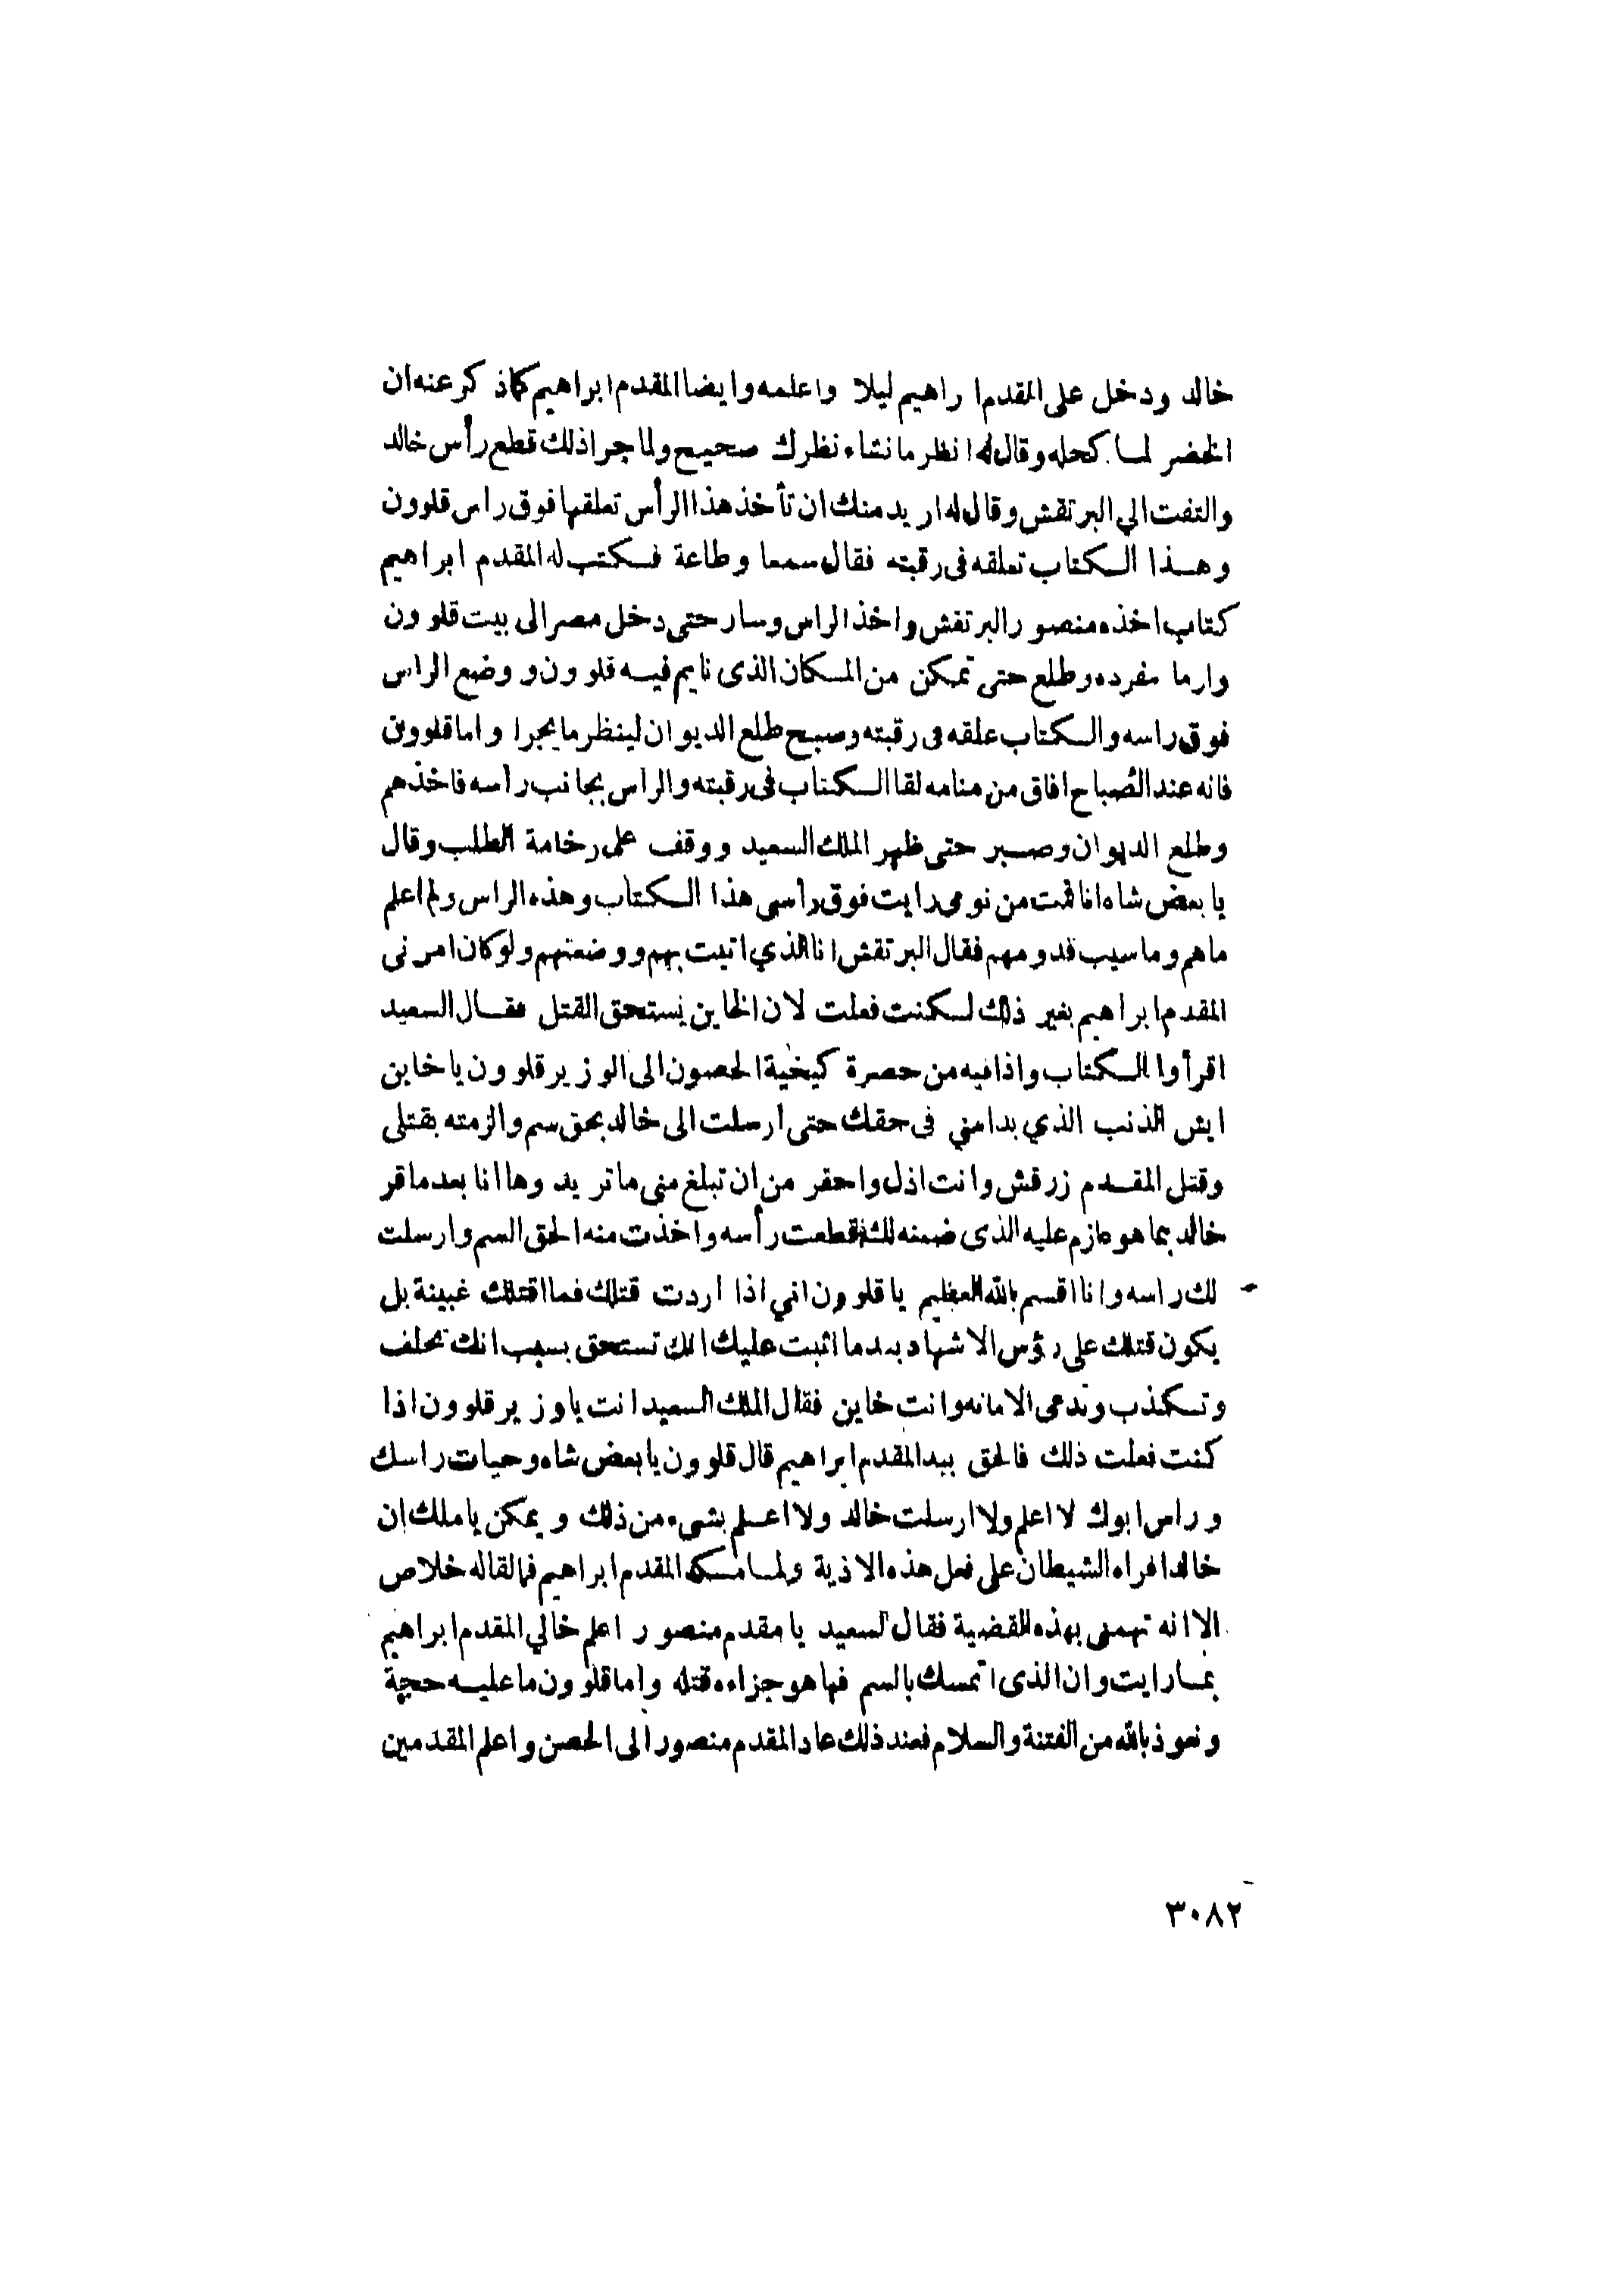 خالد ودخل على المقدم ا راهيم ليلا واعلمه وايضا المقدم ابراهيم كما ذكر عنه ان
الخضر لما كحله وقال له انظر ما نشاء نظرك صحيح ولما جرا ذلك قطع رأس خالد
والتفت الي البرتقش وقال له اريد منك ان تأخذ هذا الرأس تعلقها فوق راس قلوون
وهذا الكتاب تعلقه فى رقبته فقال سمعا وطاعة فكتب له المقدم ابراهيم
كتاب اخذه منصور البرتقش واخذ الراس وسار حتى دخل مصر الى بيت قلوون
وارما مفرده وطلع حتى تمكن من المكان الذى نايم فيه قلوون ووضع الراس
فوق راسه والكتاب علقه فى رقبته وصبح طلع الديوان لينظر ما يجرا واما قلوون
فانه عند الصباح افاق من منامه لقا الكتاب فى رقبته والراس بجانب رأسه فاخذهم
وطلع الديوان وصبر حتى ظهر الملك السعيد ووقف على رخامة الطلب وقال
يا بعض شاه انا قمت من نومى رايت فوق رأسى هذا الكتاب وهذه الراس ولم اعلم
ما هم وما سبب قدومهم فقال البرتقش انا الذي اتيت بهم ووضعتهم ولو كان امرنى
المقدم ابراهيم بغير ذلك لكنت فعلت لان الخاين يستحق القتل فقال السعيد
اقرأوا الكتاب واذا فيه من حصرة كيخية الحصون الى الوزير قلوون يا خاين
ايش الذنب الذي بدا مني فى حقك حتى ارسلت الى خالد بحق سم والزمته بقتلى
وقتل المقدم زرقش وانت اذل واحقر من ان تبلغ منى ما تريد وها انا بعد ما قر
خالد بما هو عازم عليه الذى ضمنه لك قطعت رأسه واخذت منه الحق السم وارسلت
لك راسه وانا اقسم بالله العظيم يا قلوون اني اذا اردت قتلك فما اقتلك غبينة بل
يكون قتلك على رؤس الاشهاد بعد ما اثبت عليك انك تستحق بسبب انك تحلف
وتكذب وتدعى الامانه وانت خاين فقال الملك السعيد انت يا وزير قلوون اذا
كنت فعلت ذلك فالحق بيد المقدم ابراهيم قال قلوون يا بعض شاه وحيات راسك
وراس ابوك لا اعلم ولا ارسلت خالد ولا اعلم بشىء من ذلك ويمكن يا ملك ان
خالدا اغراه الشيطان على فعل هذه الاذية ولما مسكه المقدم ابراهيم فما لقا له خلاص
الا انه تهمنى بهذه القضية فقال السعيد يا مقدم منصور اعلم خالي المقدم ابراهيم
بما رايت وان الذى اتمسك بالسم فها هو جزاءه قتله واما قلوون ما عليه حجة
ونعوذ بالله من الفتنة والسلام فعند ذلك عاد المقدم منصور الى الحصن واعلم المقدمين
٣٠٨٢